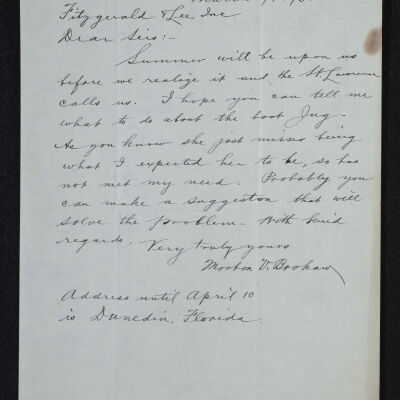 Fitzgerald & Lee Inc
Dear Sirs:-
Summer will be upon us
before we realize it and the St. Lawrence
calls us. I hope you can tell me
what to do about the boat Jug-
As you know she just misses being
what I expected her to be, so has
not met my need. Probably you
can make a suggestion that will
solve the problem. With kind
regards.
Very truly yours
Morton V. Brokaw
Address until April 10
is Dunedin, Florida.